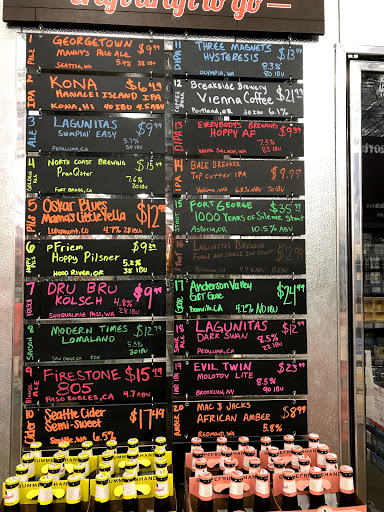 craft draft to go
1 PALE GEORGETOWN $9.99
MANNY'S PALE ALE
SEATTLE, WA 5.4% 38 IBU
2 IPA KONA $6.49
HANALEI ISLAND IPA
KONA, HI 40 IBU 4.5 ABV
3 ALE LAGUNITAS $9.99
SUMPIN' EASY
PETALUMA, CA 5.7%
4 NORTH COAST BREWING $15.49
PranQster
7.6%
FORT BRAGG, CA 20 IBU
5 Pils Oskar Blues
Mamas Little Yella
LONGMONT, CO 4.7% 28 IBU
6 PILS pFriem $9.99
Hoppy Pilsner
5.2%
HOOD RIVER, OR 38 IBU
7 KOLSCH DRU BRU $9.99
KÖLSCH 4.8%
SNOQUALMIE PASS, WA
8 SAISON MODERN TIMES $12.99
LOMALAND
5.5%
SAN DIEGO, CA
9 BLONDE ALE FIRESTONE $15.49
805
PASO ROBLES, CA 4.7 ABV
10 Cider Seattle Cider $17.49
Semi-Sweet
Seattle, WA 6.5%
11 DIPA THREE MAGNETS $13.99
HYSTERESIS
8.3%
OLYMPIA, WA 80 IBU
12 Breakside Brewery $21.99
Vienna Coffee
Portland, OR 6.1%
13 DIPA EVERYBODY'S BREWING $9.99
HOPPY AF
7.5%
WHITE SALMON, WA
14 IPA BALE BREAKER $9.99
Top Cutter IPA
Yakima, WA 6.8% ABV 70 IBU
15 STOUT FORT GEORGE $35.99
1000 YEARS OF Silence Stout
Astoria, OR 10.5% ABV
16 LAGUNITAS BREWING $12.99
17 GOSE Anderson Valley $24.99
G&T GOSE
Boonville, CA 4.2% NO IBU
18 SOUR LAGUNITAS $12.99
DARK SWAN 8.5%
PETALUMA, CA
19 EVIL TWIN $23.99
MOLOTOV LITE
8.5%
BROOKLYN, NY 90 IBU
20 AMBER MAC & JACKS $8.99
AFRICAN AMBER
REDMOND, WA 5.8%